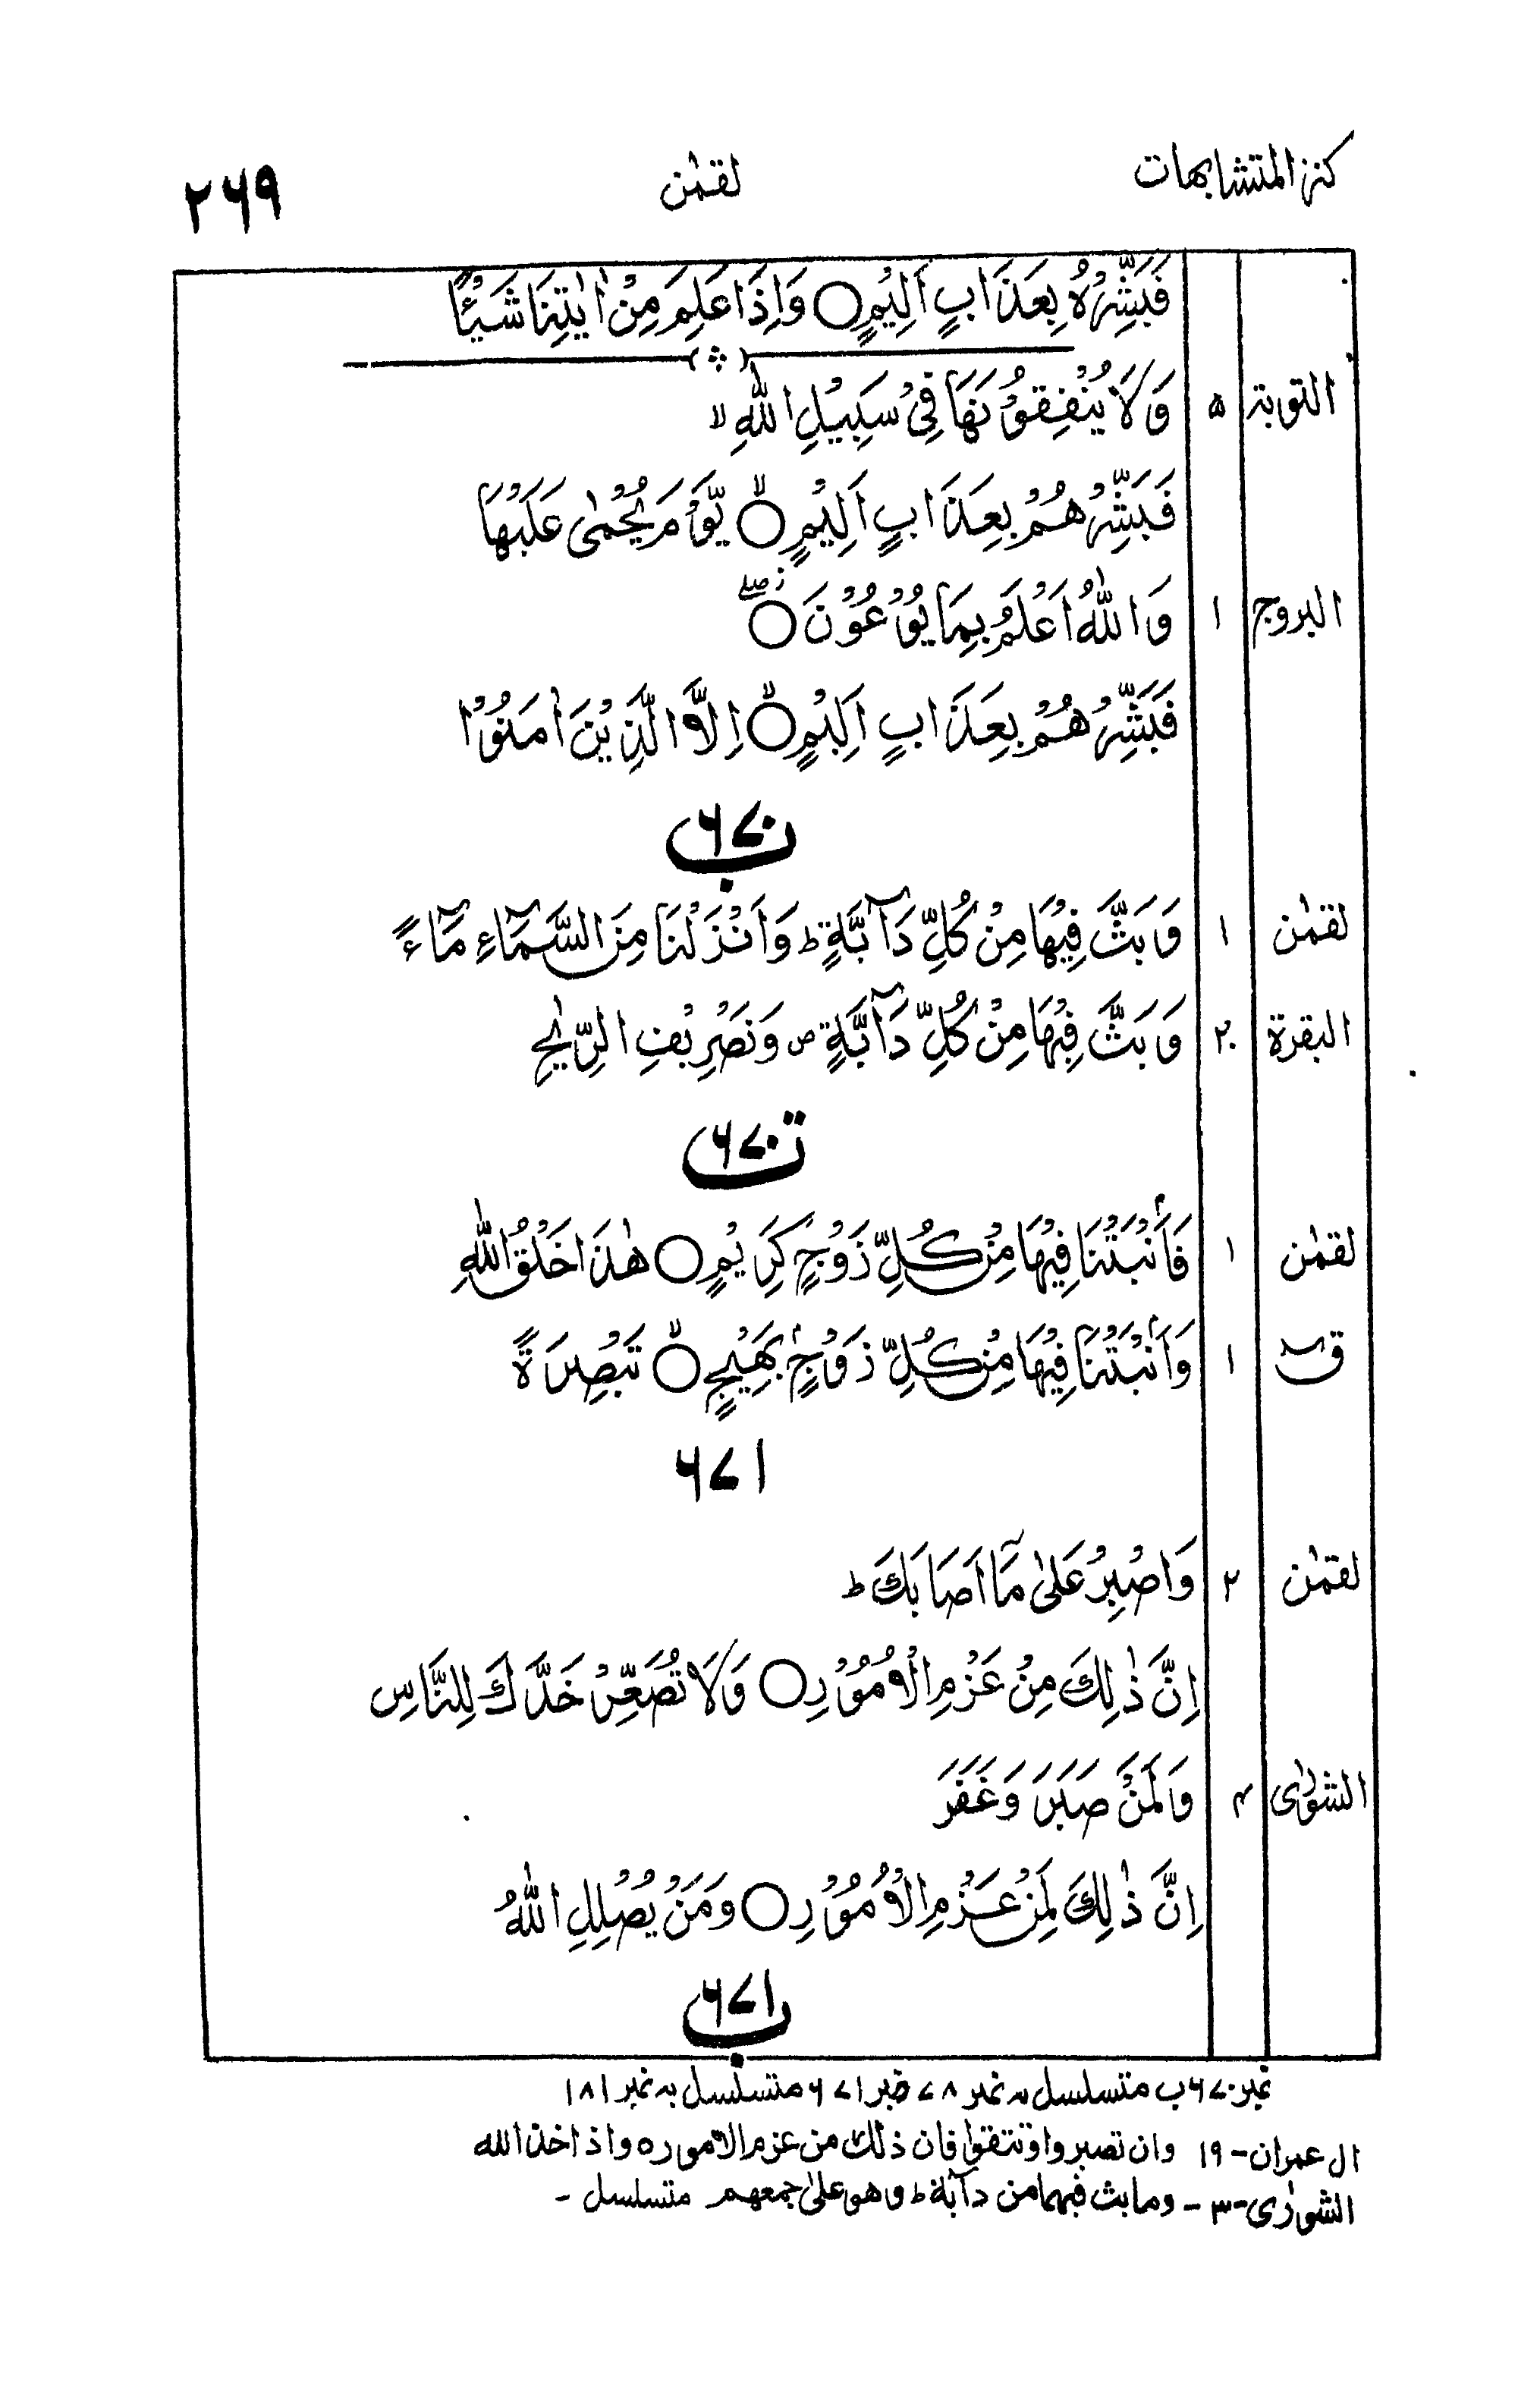 كنز المتشابهات لقمٰن ۲۶۹
فَبَشِّرْهُ بِعَذَابٍ اَلِيْمٍ ○ وَاِذَا عَلِمَ مِنْ اٰيٰتِنَا شَيْئًا
التوبة ۵ وَلَا يُنْفِقُوْنَهَا فِيْ سَبِيْلِ اللّٰهِ ۙ
فَبَشِّرْهُمْ بِعَذَابٍ اَلِيْمٍ ○ۙ يَّوْمَ يُحْمٰى عَلَيْهَا
البروج ۱ وَاللّٰهُ اَعْلَمُ بِمَا يُوْعُوْنَ ○
فَبَشِّرْهُمْ بِعَذَابٍ اَلِيْمٍ ○ۙ اِلَّا الَّذِيْنَ اٰمَنُوْا
۶۷۰ ب
لقمٰن ۱ وَبَثَّ فِيْهَا مِنْ كُلِّ دَآبَّةٍ ؕ وَاَنْزَلْنَا مِنَ السَّمَآءِ مَآءً
البقرة ۲۰ وَبَثَّ فِيْهَا مِنْ كُلِّ دَآبَّةٍ ص وَتَصْرِيْفِ الرِّيٰحِ
۶۷۰ ت
لقمٰن ۱ فَاَنْۢبَتْنَا فِيْهَا مِنْ كُلِّ زَوْجٍ كَرِيْمٍ ○ هٰذَا خَلْقُ اللّٰهِ
قٓ ۱ وَاَنْۢبَتْنَا فِيْهَا مِنْ كُلِّ زَوْجٍۢ بَهِيْجٍ ○ۙ تَبْصِرَةً
۶۷۱
لقمٰن ۲ وَاصْبِرْ عَلٰى مَآ اَصَابَكَ ؕ
اِنَّ ذٰلِكَ مِنْ عَزْمِ الْاُمُوْرِ ○ وَلَا تُصَعِّرْ خَدَّكَ لِلنَّاسِ
الشورٰى ۴ وَلَمَنْ صَبَرَ وَغَفَرَ
اِنَّ ذٰلِكَ لَمِنْ عَزْمِ الْاُمُوْرِ ○ وَمَنْ يُّضْلِلِ اللّٰهُ
۶۷۱ ب
نمبر ۶۷۰ ب متسلسل به نمبر ۷۸ نمبر ۶۷۱ متسلسل به نمبر ۱۸۱
اٰل عمران - ۱۹ وان تصبروا وتتقوا فان ذٰلك من عزم الامور ه واذ اخذ الله
الشورٰى - ۳ - وما بث فيهما من دآبة ط وهو علىٰ جمعهم متسلسل -